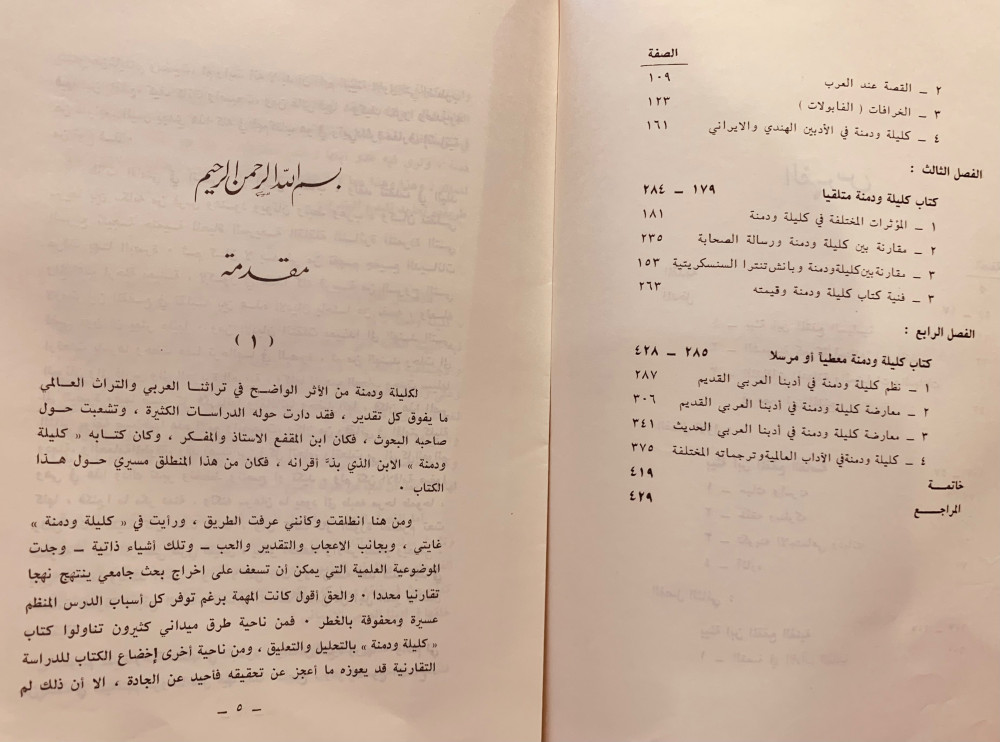 الصفة
٢ ــ القصة عند العرب ١٠٩
٣ ــ الخرافات ( الفابولات ) ١٢٣
٤ ــ كليلة ودمنة في الأدبين الهندي والايراني ١٦١
الفصل الثالث :
كتاب كليلة ودمنة متلقيا ١٧٩ ــ ٢٨٤
١ ــ المؤثرات المختلفة في كليلة ودمنة ١٨١
٢ ــ مقارنة بين كليلة ودمنة ورسالة الصحابة ٢٣٥
٣ ــ مقارنة بين كليلة ودمنة وبانش تنترا السنسكريتية ١٥٣
٣ ــ فنية كتاب كليلة ودمنة وقيمته ٢٦٣
الفصل الرابع :
كتاب كليلة ودمنة معطياً أو مرسلا ٢٨٥ ــ ٤٢٨
١ ــ نظم كليلة ودمنة في أدبنا العربي القديم ٢٨٧
٢ ــ معارضة كليلة ودمنة في أدبنا العربي القديم ٣٠٦
٣ ــ معارضة كليلة ودمنة في أدبنا العربي الحديث ٣٤١
٤ ــ كليلة ودمنة في الآداب العالمية وترجماته المختلفة ٣٧٥
خاتمـــة ٤١٩
المراجــع ٤٢٩
بسم الله الرحمن الرحيم
مقدمة
( ١ )
لكليلة ودمنة من الأثر الواضح في تراثنا العربي والتراث العالمي
ما يفوق كل تقدير ، فقد دارت حوله الدراسات الكثيرة ، وتشعبت حول
صاحبه البحوث ، فكان ابن المقفع الاستاذ والمفكر ، وكان كتابه « كليلة
ودمنة » الابن الذي بذَّ أقرانه ، فكان من هذا المنطلق مسيري حول هذا
الكتاب ٠
ومن هنا انطلقت وكأنني عرفت الطريق ، ورأيت في « كليلة ودمنة »
غايتي ، وبجانب الاعجاب والتقدير والحب ــ وتلك أشياء ذاتية ــ وجدت
الموضوعية العلمية التي يمكن أن تسعف على اخراج بحث جامعي ينتهج نهجا
تقارنيا محددا ٠ والحق أقول كانت المهمة برغم توفر كل أسباب الدرس المنظم
عسيرة ومحفوفة بالغطر ٠ فمن ناحية طرق ميداني كثيرون تناولوا كتاب
« كليلة ودمنة » بالتحليل والتعليق ، ومن ناحية أخرى إخضاع الكتاب للدراسة
التقارنية قد يعوزه ما أعجز عن تحقيقه فأحيد عن الجادة ، الا أن ذلك لم
ــ ٥ ــ